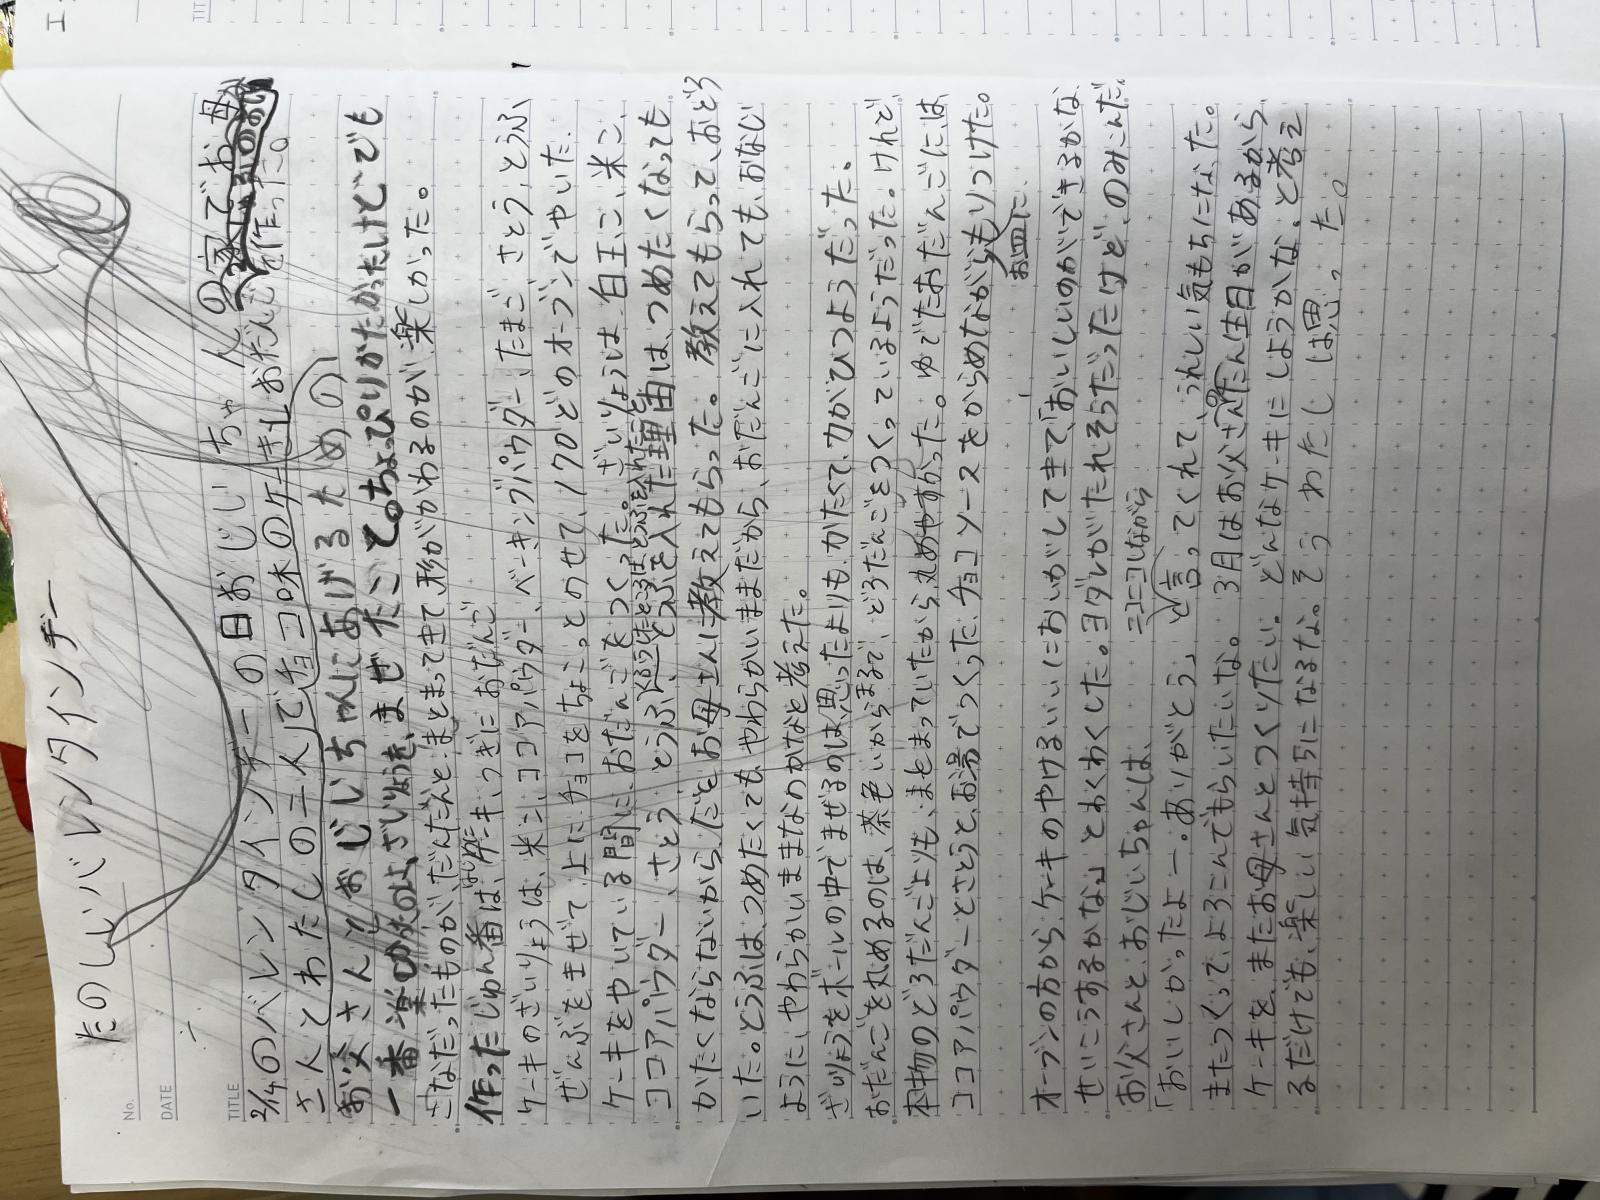 たのしいバレンタインデー
No.
DATE
TITLE
2/14のバレンタインデーの日おじいちゃんの家でお母
さんとわたしの二人でチョコ味のケーキとおだんごを作った。
お父さんとおじいちゃんにあげるための
一番楽
ざいりょうをまぜたこと。ちょっぴりかたかったけどでも
こなだったものが、だんだんと、まとまってきて形がかわるのが楽しかった。
作ったじゅん番は、はじめにケーキ、つぎにおだんご
ケーキのざいりょうは、米こ、ココアパウダー、ベーキングパウダー、たまご、さとう、とうふ、
ぜんぶをまぜて上にチョコをちょこっとのせて、170どのオーブンでやいた。
ケーキをやいている間に、おだんごをつくった。ざいりょうは、白玉こ、米こ、
ココアパウダー、さとう、とうふ、とうふを入れた理由は、つめたくなっても
かたくならないから、だとお母さんに教えてもらった。教えてもらって、おどろ
いた。とうふは、つめたくても、やわらかいままだから、おだんごに入れても、おなじ
ように、やわらかいままなのかなと考えた。
ざいりょうをボールの中でまぜるのは、思ったよりも、かたくて、力がひつようだった。
おだんごを丸めるのは、茶色いからまるで、どろだんごをつくっているようだった。けれど、
本物のどろだんごよりも、まとまっていたから丸めやすかった。ゆでたおだんごには
ココアパウダーとさとうと、お湯でつくった、チョコソースをからめながらもりつけた。
お皿に
オーブンの方から、ケーキのやけるいいにおいがしてきて、「おいしいのができるかな
せいこうするかな」とわくわくした。ヨダレがたれそうだったけど、のみこんだ。
お父さんと、おじいちゃんは、
ニコニコしながら
「おいしかったよー。ありがとう」と言ってくれて、うれしい気もちになった。
またつくって、よろこんでもらいたいな。3月はお父さんのたん生日があるから、
ケーキを、またお母さんとつくりたい。どんなケーキにしようかな。と考え
るだけでも、楽しい気持ちになるな。そうわたしは思った。